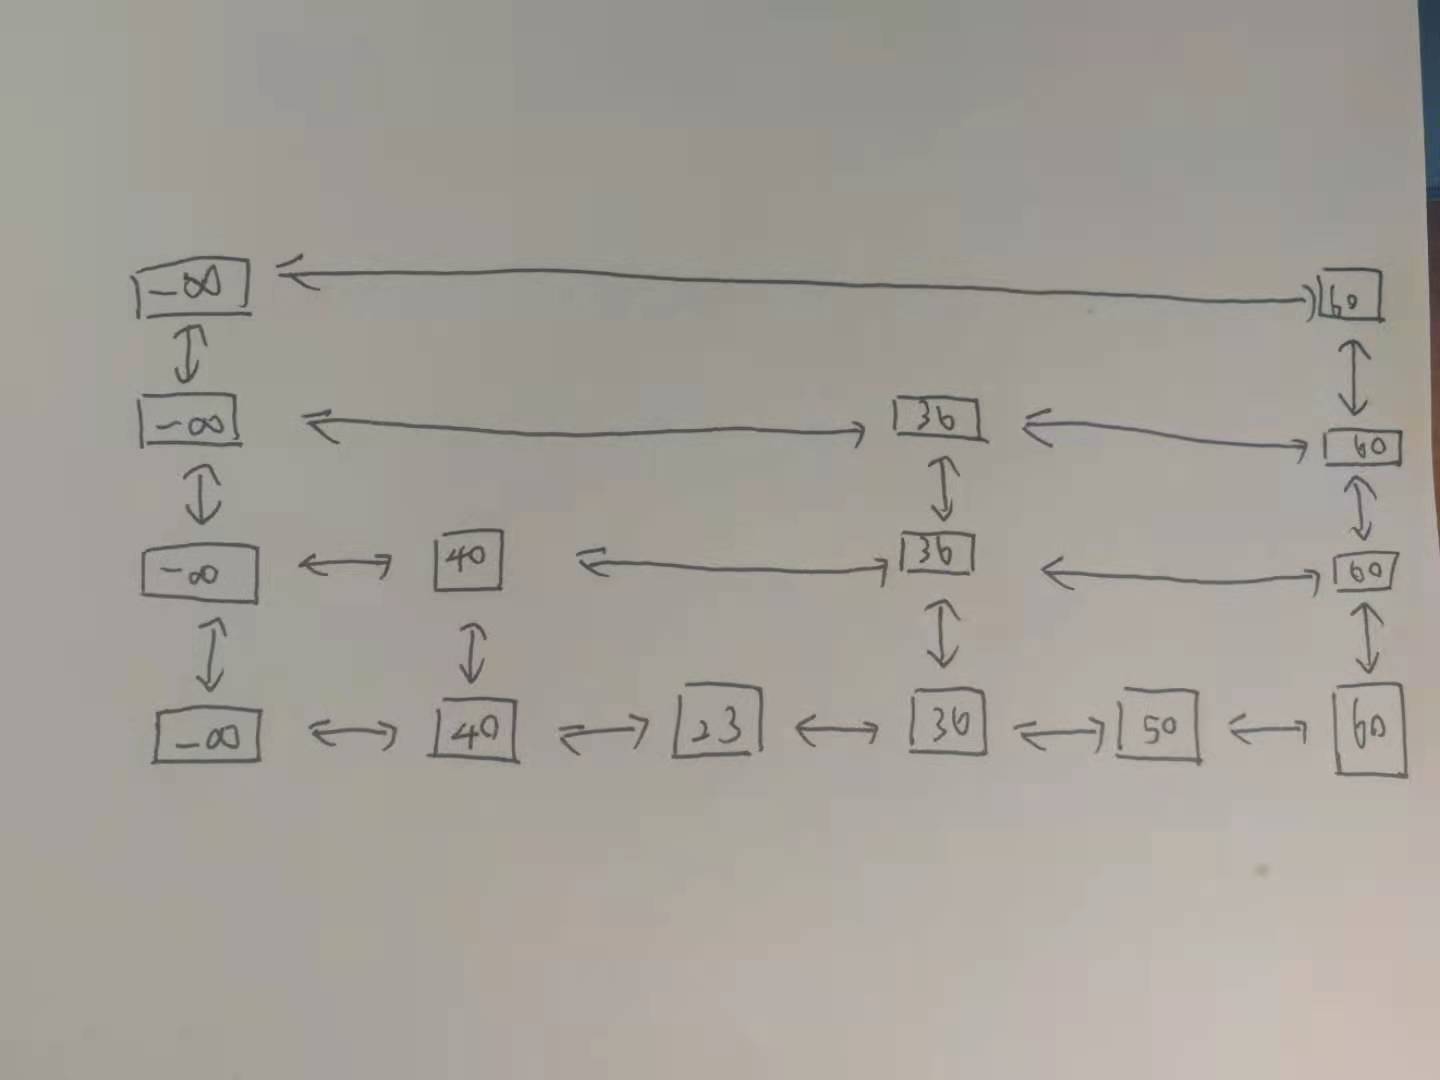 -∞ 60
-∞ 36 60
-∞ 40 36 60
-∞ 40 23 36 50 60